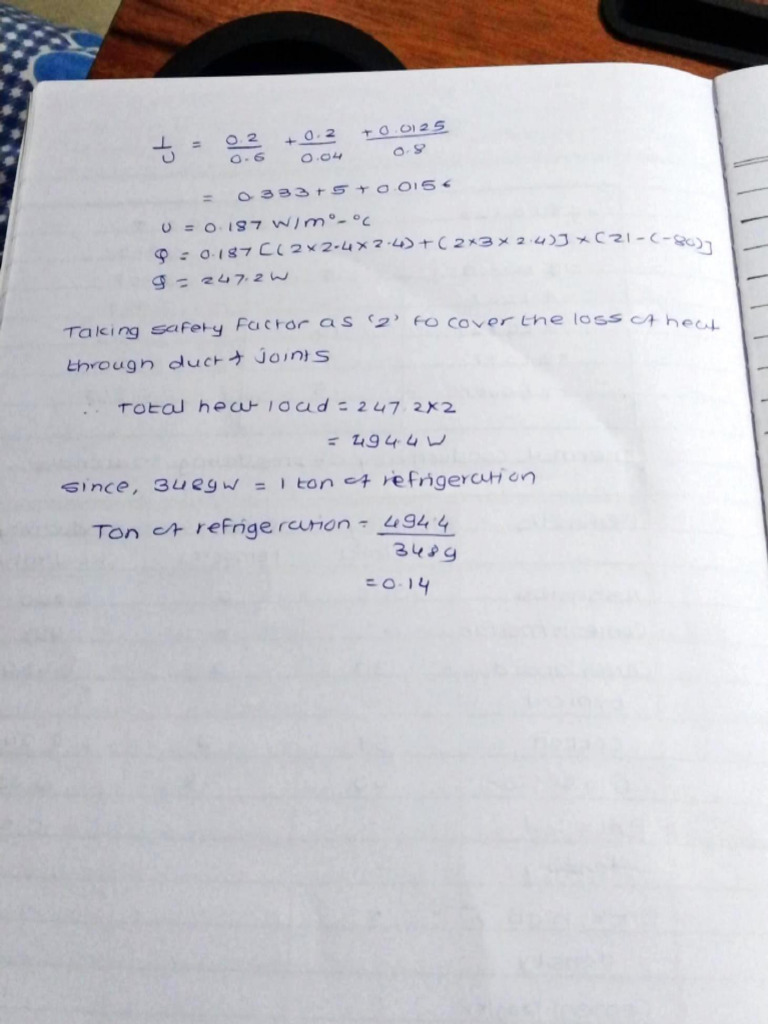 1/U = 0.2/0.6 + 0.2/0.04 + 0.0125/0.8
= 0.333 + 5 + 0.0156
U = 0.187 W/m°-°C
Q = 0.187 [(2×2.4×2.4)+(2×3×2.4)] × [21-(-80)]
Q = 247.2 W
Taking safety factor as '2' to cover the loss of heat
through duct & joints
∴ Total heat load = 247.2×2
= 494.4 W
since, 3489 W = 1 ton of refrigeration
Ton of refrigeration = 494.4/3489
= 0.14